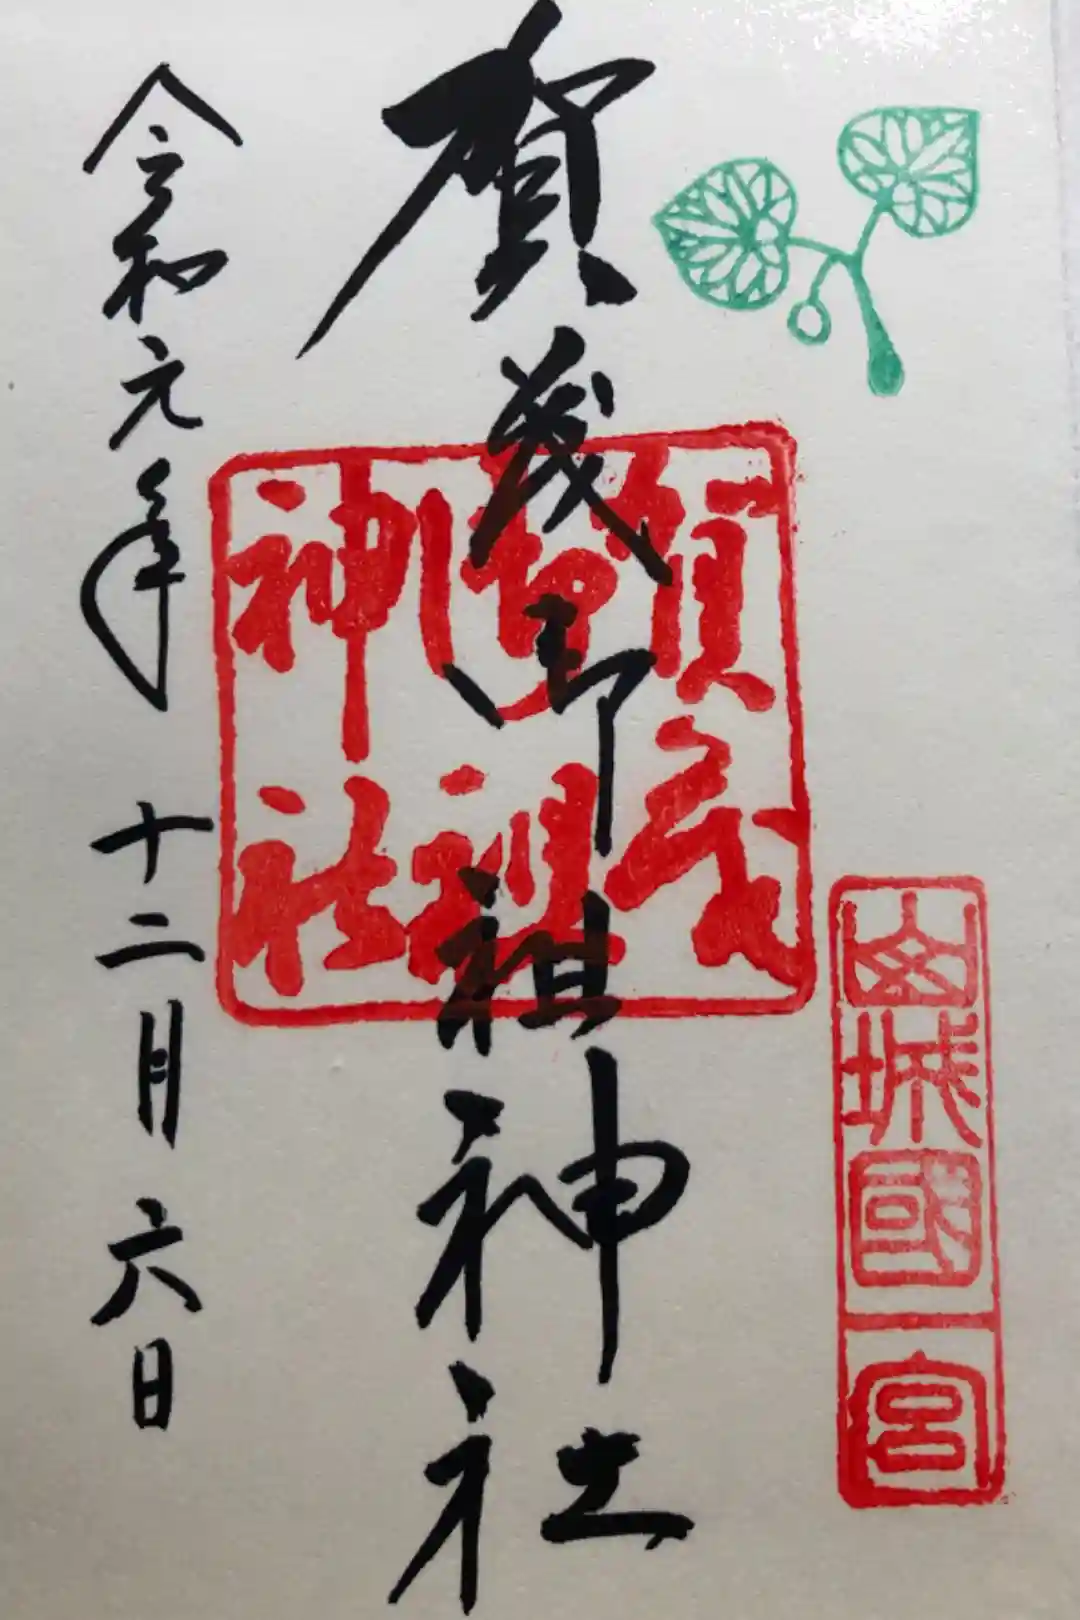 山城國一宮
賀茂御祖神社
賀茂
御祖
神社
令和元年 十二月六日